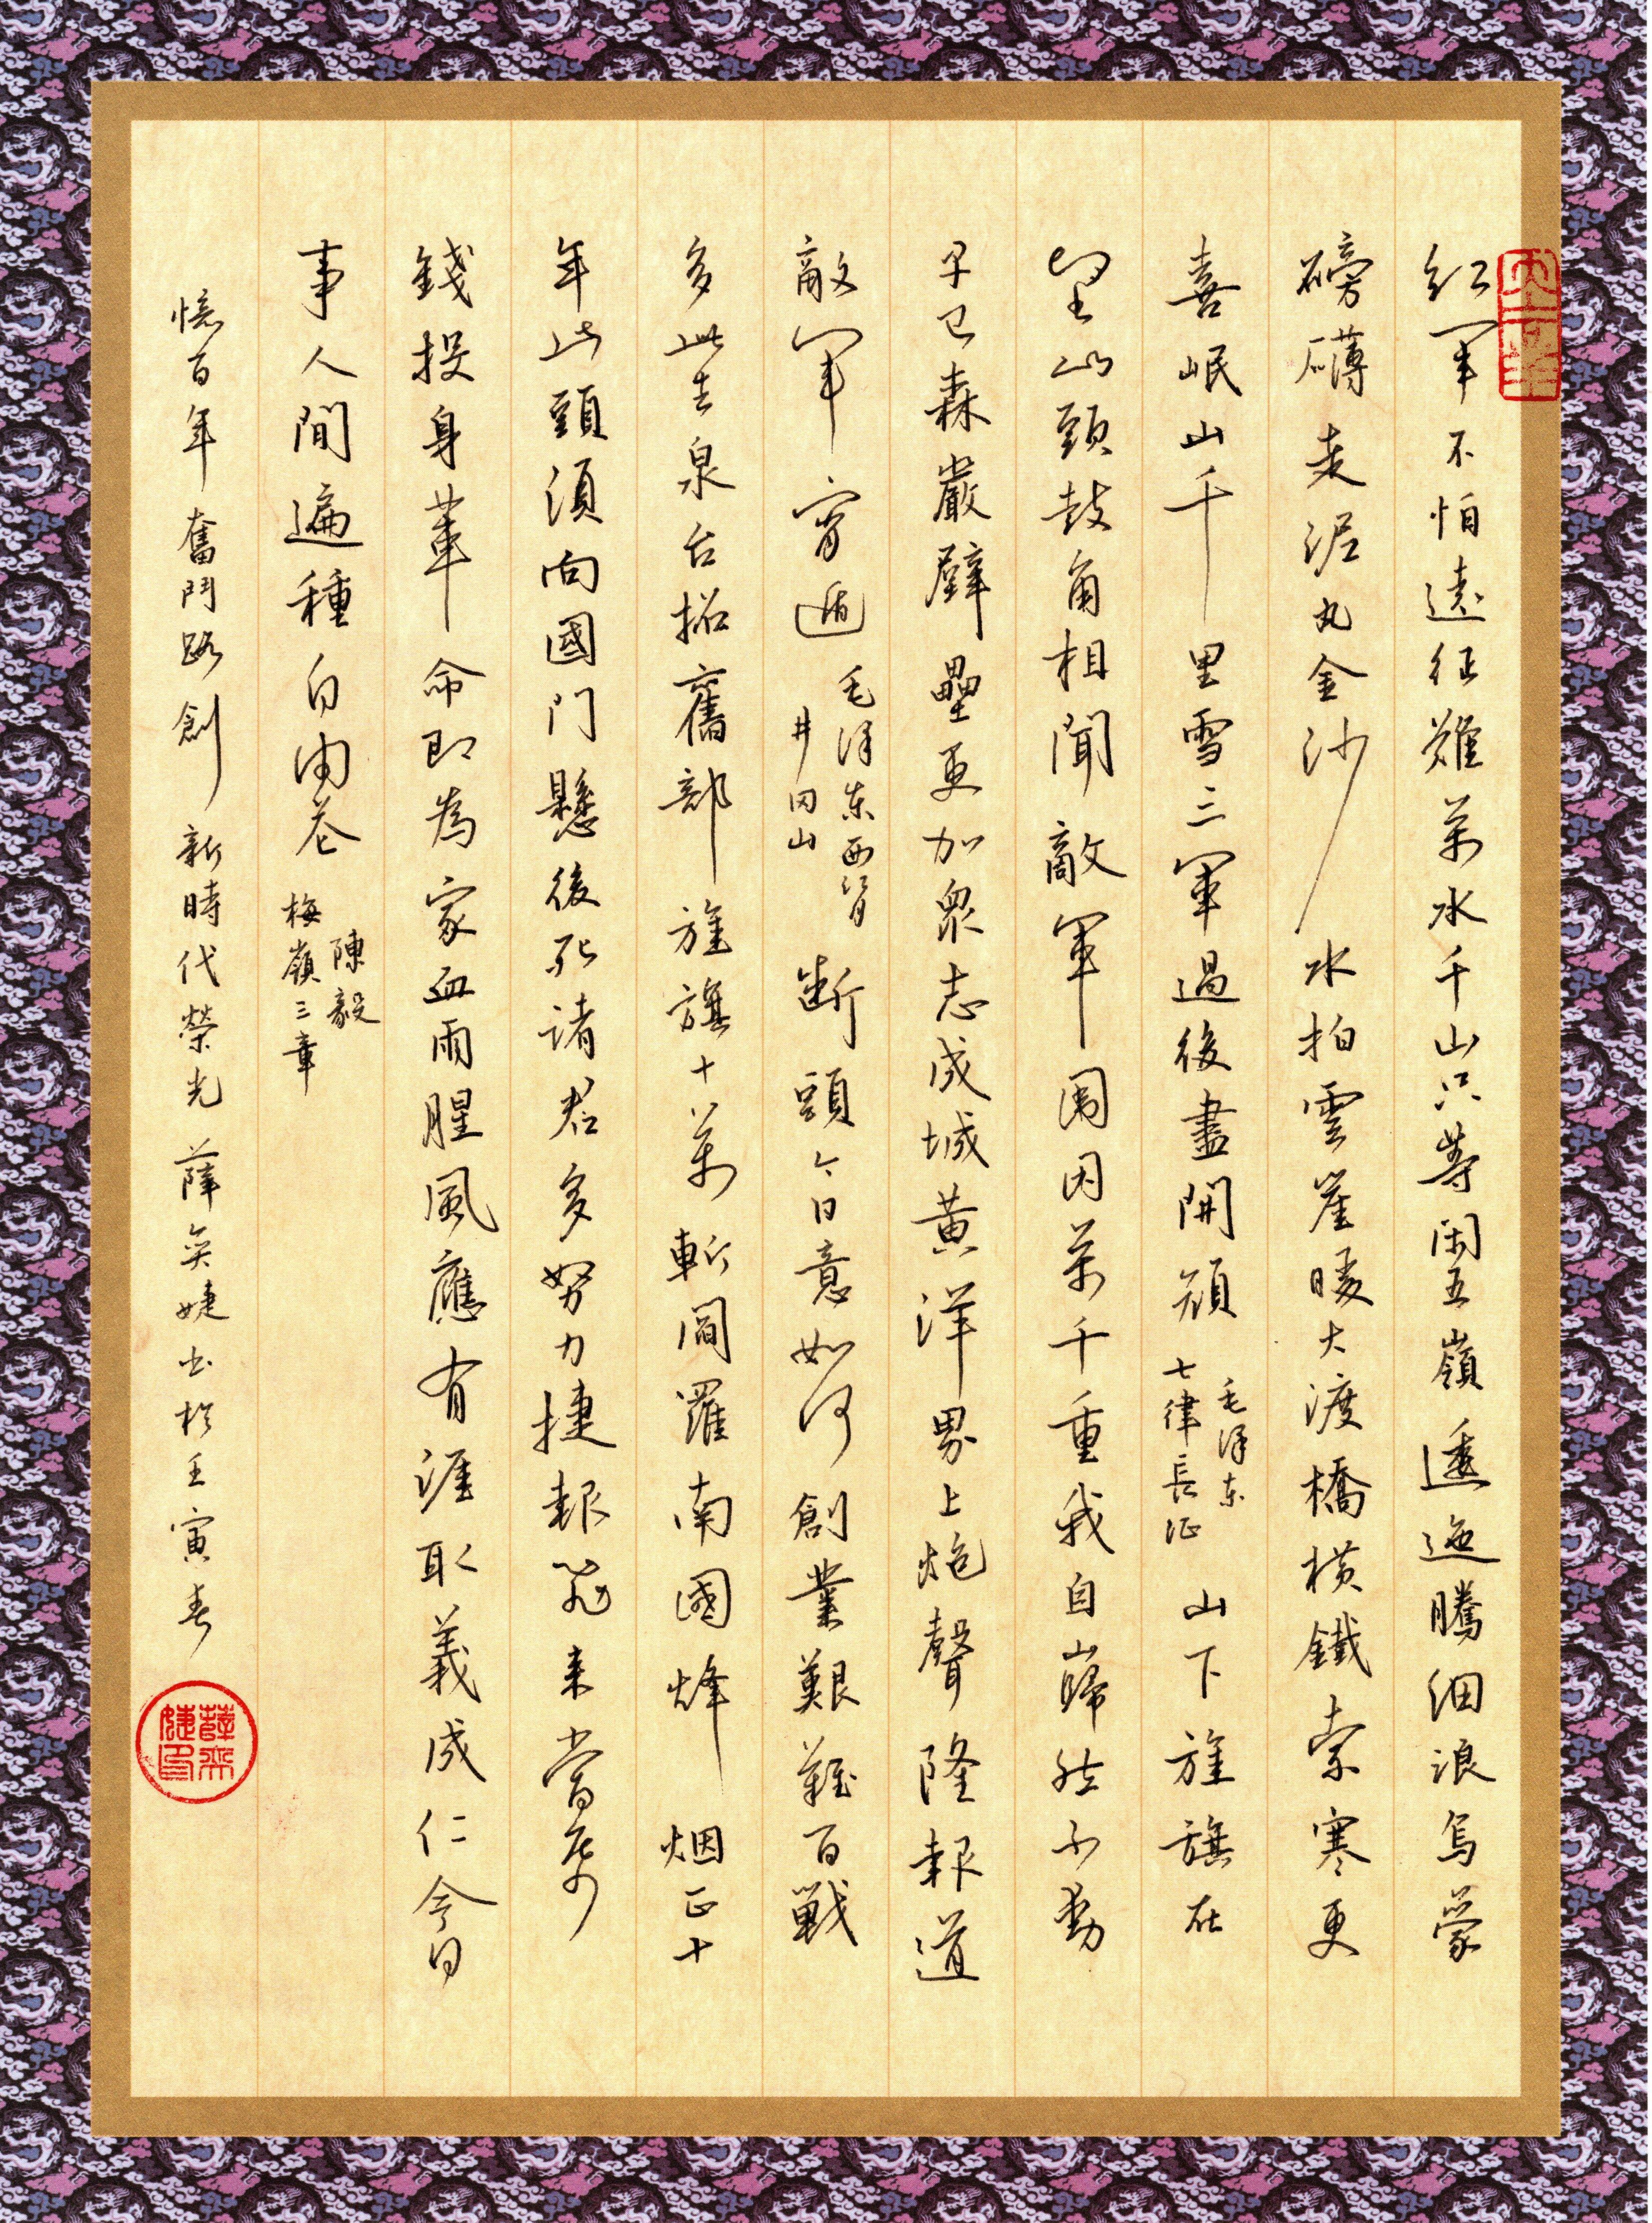 紅軍不怕遠征難萬水千山只等閑五嶺逶迤騰細浪烏蒙
磅礴走泥丸金沙水拍雲崖暖大渡橋橫鐵索寒更
喜岷山千里雪三軍過後盡開顏
毛澤东
七律長征
山下旌旗在
望山頭鼓角相聞敵軍圍困萬千重我自巋然不動
早已森嚴壁壘更加眾志成城黃洋界上炮聲隆報道
敵軍宵遁
毛澤东西江月
井冈山
斷頭今日意如何創業艱難百戰
多此去泉台招舊部旌旗十萬斬閻羅南國烽烟正十
年此頭須向國門懸後死諸君多努力捷報飛来當紙
錢投身革命即為家血雨腥風應有涯取義成仁今日
事人間遍種自由花
陳毅
梅嶺三章
憶百年奮鬥路創新時代榮光薛奕婕书於壬寅春
薛奕婕印